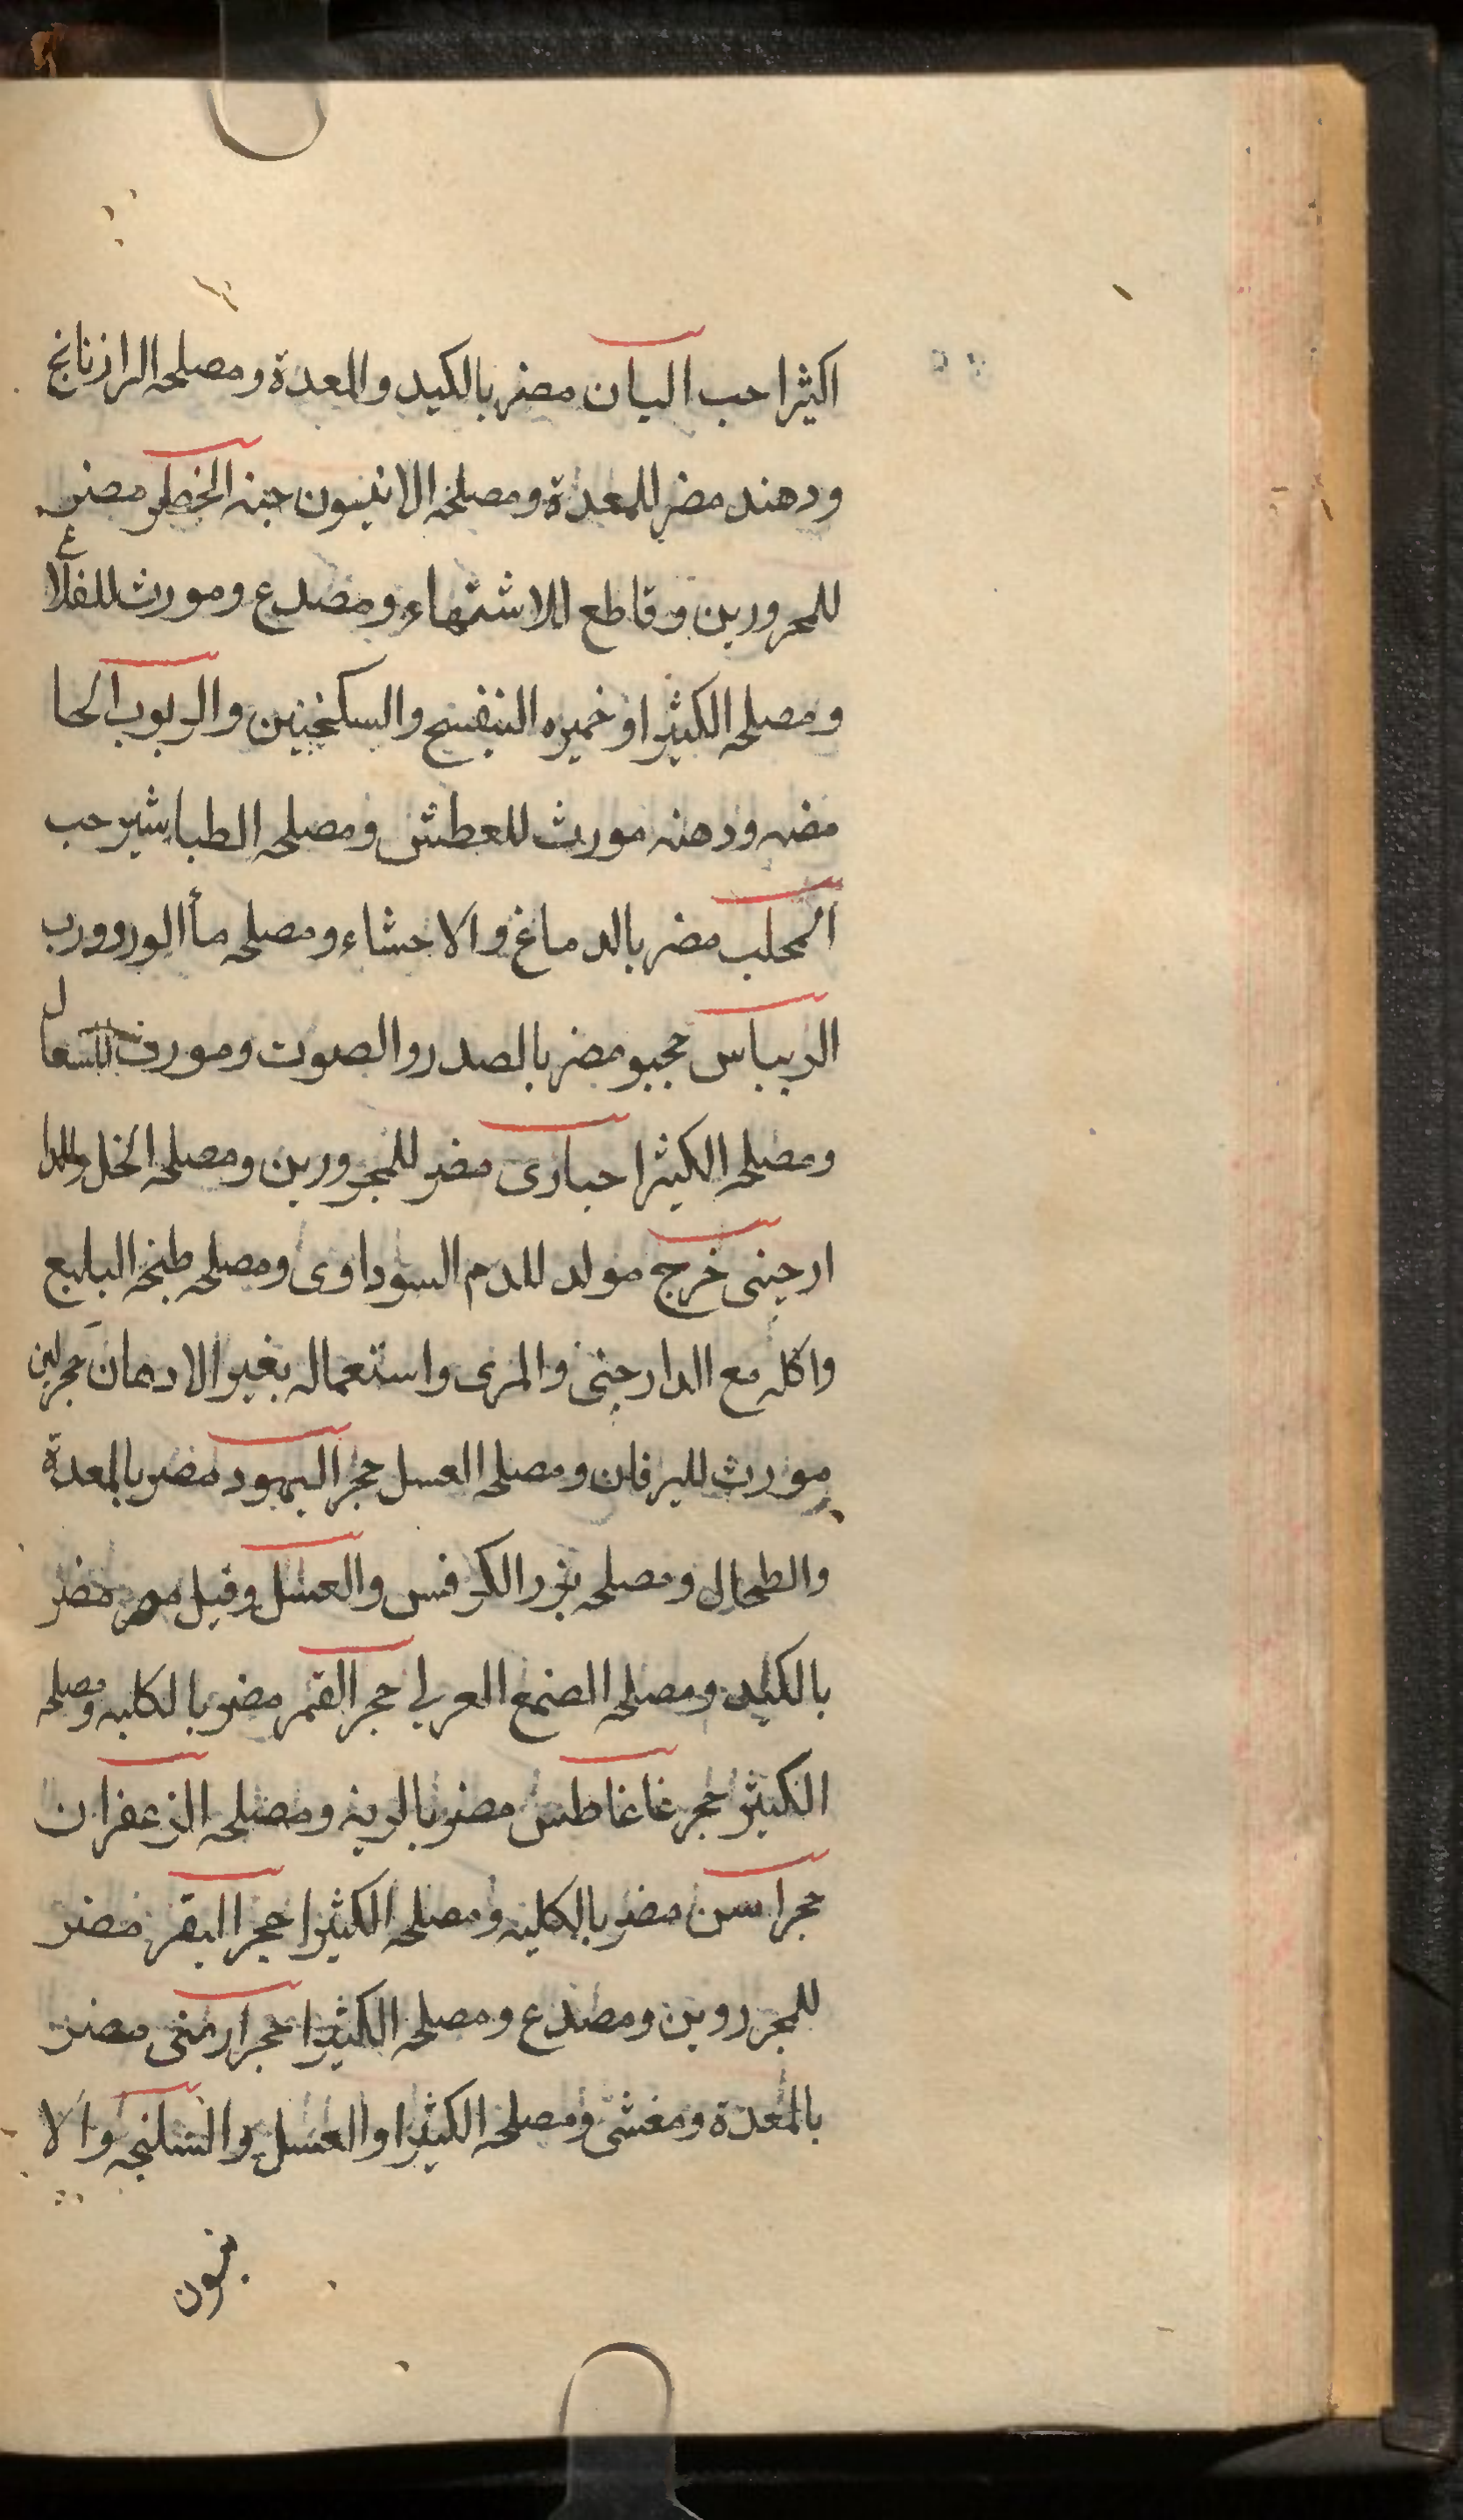 اكثيرا حب البان مضر بالكبد والمعدة ومصلحه الرازنانج
ودهند مضر للمعدة ومصلحه الانيسون حبة الخطر مضر
للمحرورين وقاطع للاشتهاء ومصدع ومورث للقلاع
ومصلحه الكثيرا وخميره البنفسج والسكنجبين والربوب الحا
مضه ودهنه مورث للعطش ومصلحه الطباشير حب
المحلب مضر بالدماغ والاحشاء ومصلحه مأ الورد ورب
الريباس حجبو مضر بالصدر والصوت ومورث للسعال
ومصلحه الكثيرا حبارى مضر للمحرورين ومصلحه الخل والدا
ارجينى خرج مولد للدم السوداوى ومصلحه طبخه البليع
واكله مع الدارجنى والمرى واستعماله بغير الادهان حجر لين
مورث لليرقان ومصلحه العسل حجر اليهود مضر بالمعدة
والطحال ومصلحه بزر الكرفس والعسل وقيل مضر
بالكبد ومصلحه الصمغ العربى حجر القمر مضر بالكليه ومصلحه
الكثيرا حجر غاغاطس مضر بالرية ومصلحه الزعفران
حجر اسن مضر بالكليه ومصلحه الكثيرا حجر البقر مضر
للمحرروين ومصدع ومصلحه الكثيرا حجر ارمنى مضر
بالمعدة ومغشى ومصلحه الكثيرا والعسل والسلنجه والا
نيون